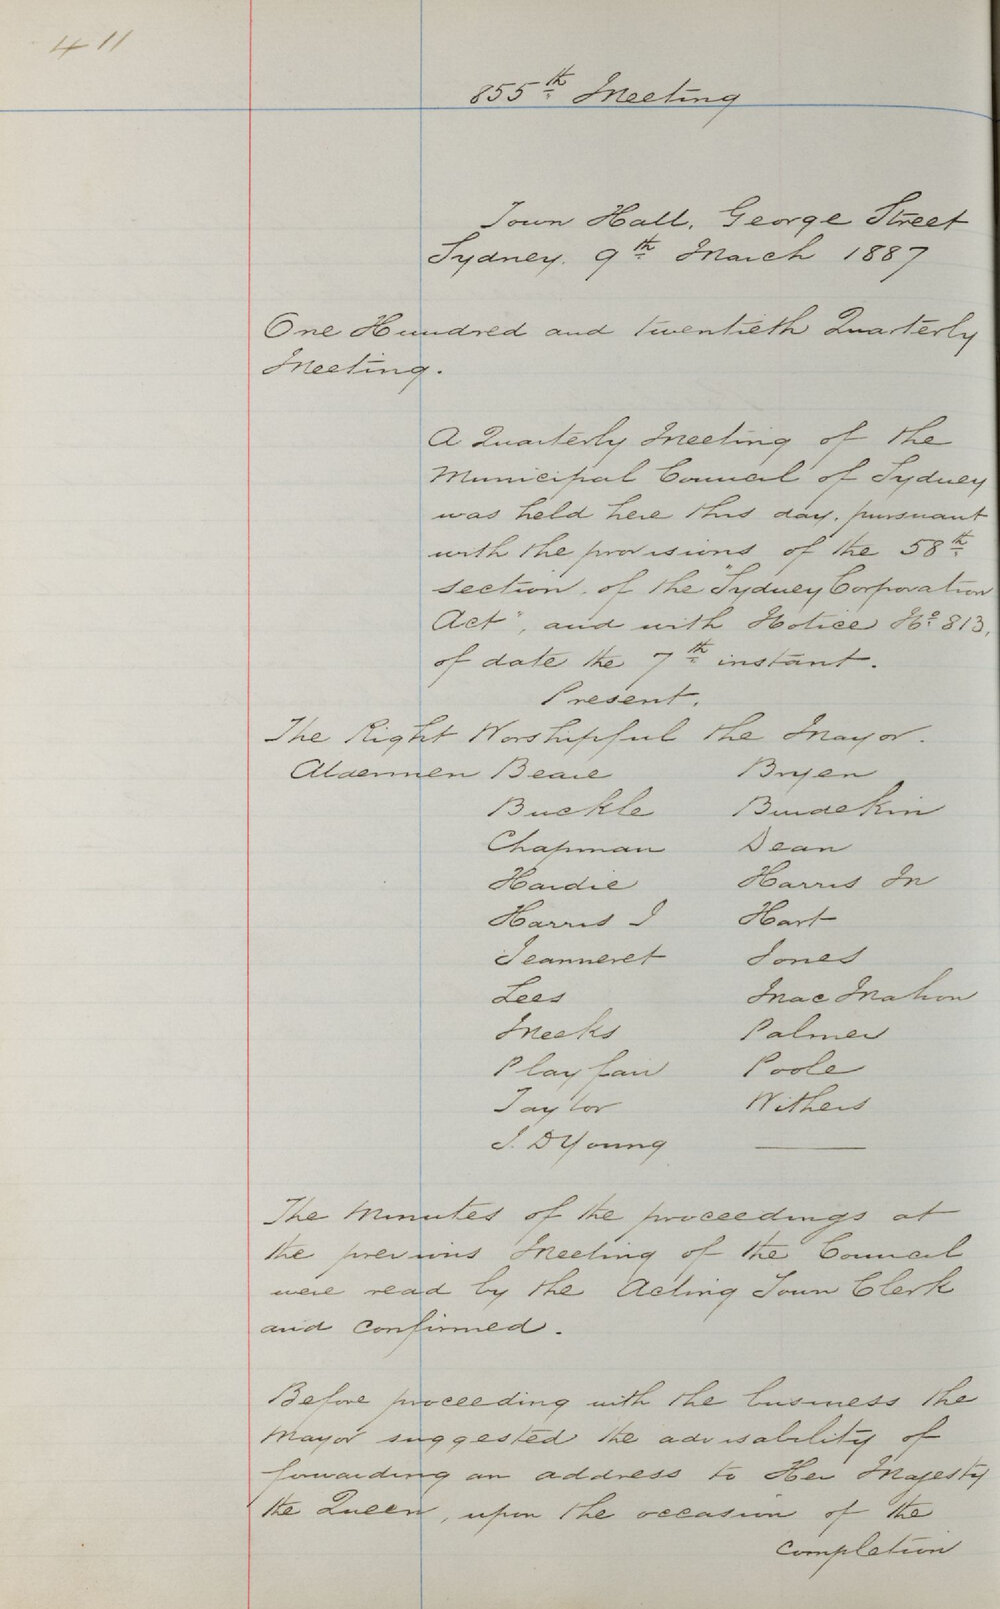 411
855th Meeting
Town Hall, George Street
Sydney. 9th March 1887
One Hundred and twentieth Quarterly
Meeting.
A Quarterly Meeting of the
Municipal Council of Sydney
was held here this day, pursuant
with the provisions of the 58th
section, of the "Sydney Corporation
Act", and with Notice No. 813,
of date the 7th instant.
Present.
The Right Worshipful the Mayor.
Aldermen Beare Bryen
Buckle Burdekin
Chapman Dean
Hardie Harris M
Harris J Hart
Jeanneret Jones
Lees MacMahon
Meeks Palmer
Playfair Poole
Taylor Withers
J. D Young
The Minutes of the proceedings at
the previous Meeting of the Council
were read by the Acting Town Clerk
and confirmed.
Before proceeding with the business the
Mayor suggested the advisability of
forwarding an address to Her Majesty
the Queen, upon the occasion of the
completion